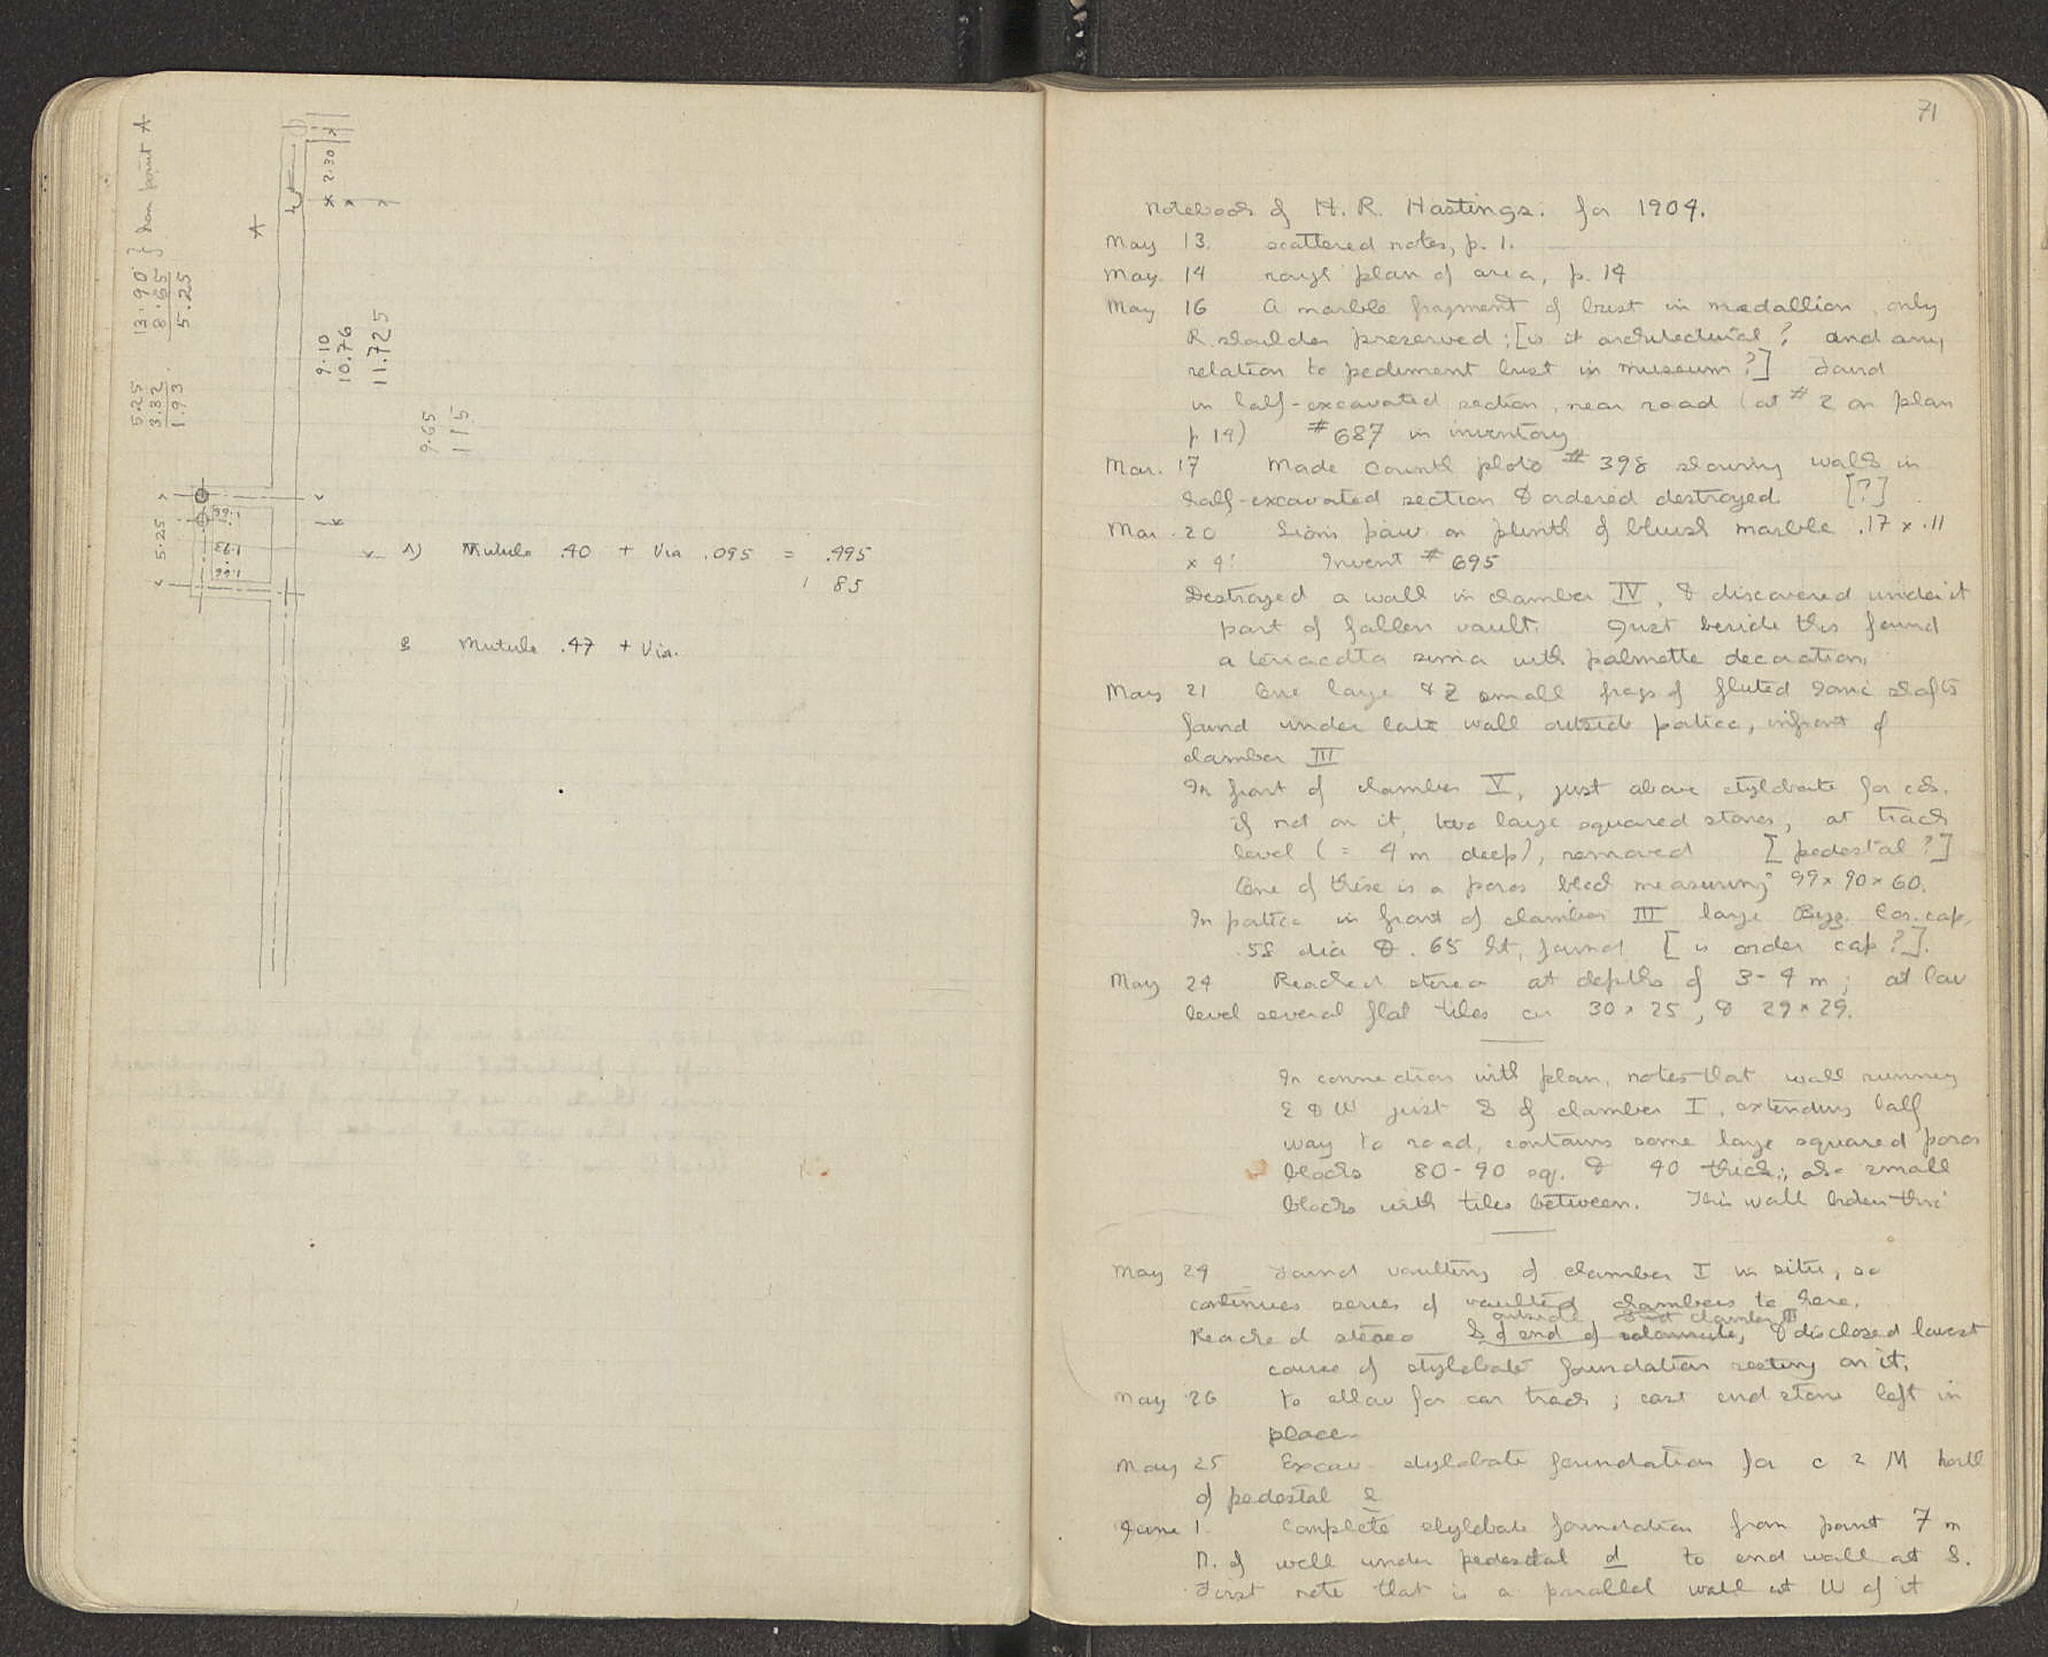 from point A
13.90
8.65
5.25
5.25
3.32
1.93
A
2.30
9.10
10.76
11.725
9.65
11.5
5.25
1.66
1.93
1.66
A) Mutule .40 + Via .095 = .495
85
B Mutule .47 + Via.
71
Notebook of H. R. Hastings. for 1904.
May 13. scattered notes, p. 1.
May 14 rough plan of area, p. 14
May 16 A marble fragment of bust in medallion, only
R. shoulder preserved; [is it architectural? and any
relation to pediment bust in museum?] Found
in half-excavated section, near road (at #2 on plan
p 14) #687 in inventory
Mar. 17 Made Count photo #398 showing walls in
half-excavated section & ordered destroyed [?]
Mar. 20 Lion's paw on plinth of bluish marble .17 x .11
Invent #695
Destroyed a wall in chamber IV, & discovered under it
part of fallen vault. Just beside this found
a terracotta sima with palmette decoration.
May 21 One large & 2 small frags of fluted Ionic shafts
found under late wall outside portico, in front of
chamber III
In front of chamber V, just above stylobate for cols.
if not on it, two large squared stones, at track
level (= 4 m deep), removed [pedestal?]
One of these is a poros block measuring 99 x 90 x 60.
In portico in front of chamber III large Byz. Cor. cap,
.58 dia & .65 ht, found [is order cap?].
May 24 Reached stereo at depths of 3-4 m; at low
level several flat tiles 30 x 25, & 29 x 29.
In connection with plan, notes that wall running
E & W just S of chamber I, extending half
way to road, contains some large squared poros
blocks 80-90 sq. & 40 thick; also small
blocks with tiles between. This wall
May 24 Found vaulting of chamber I in situ, so
continues series of vaulted chambers to here.
outside chamber III
Reached stereo S of end of colonnade, & disclosed lowest
course of stylobate foundation resting on it.
May 26 to allow for car track; east end stone left in
place.
May 25 Excav stylobate foundation for c 2 M north
of pedestal e
June 1. Complete stylobate foundation from point 7 m
N. of well under pedestal d to end wall at S.
First note that is a parallel wall at W of it